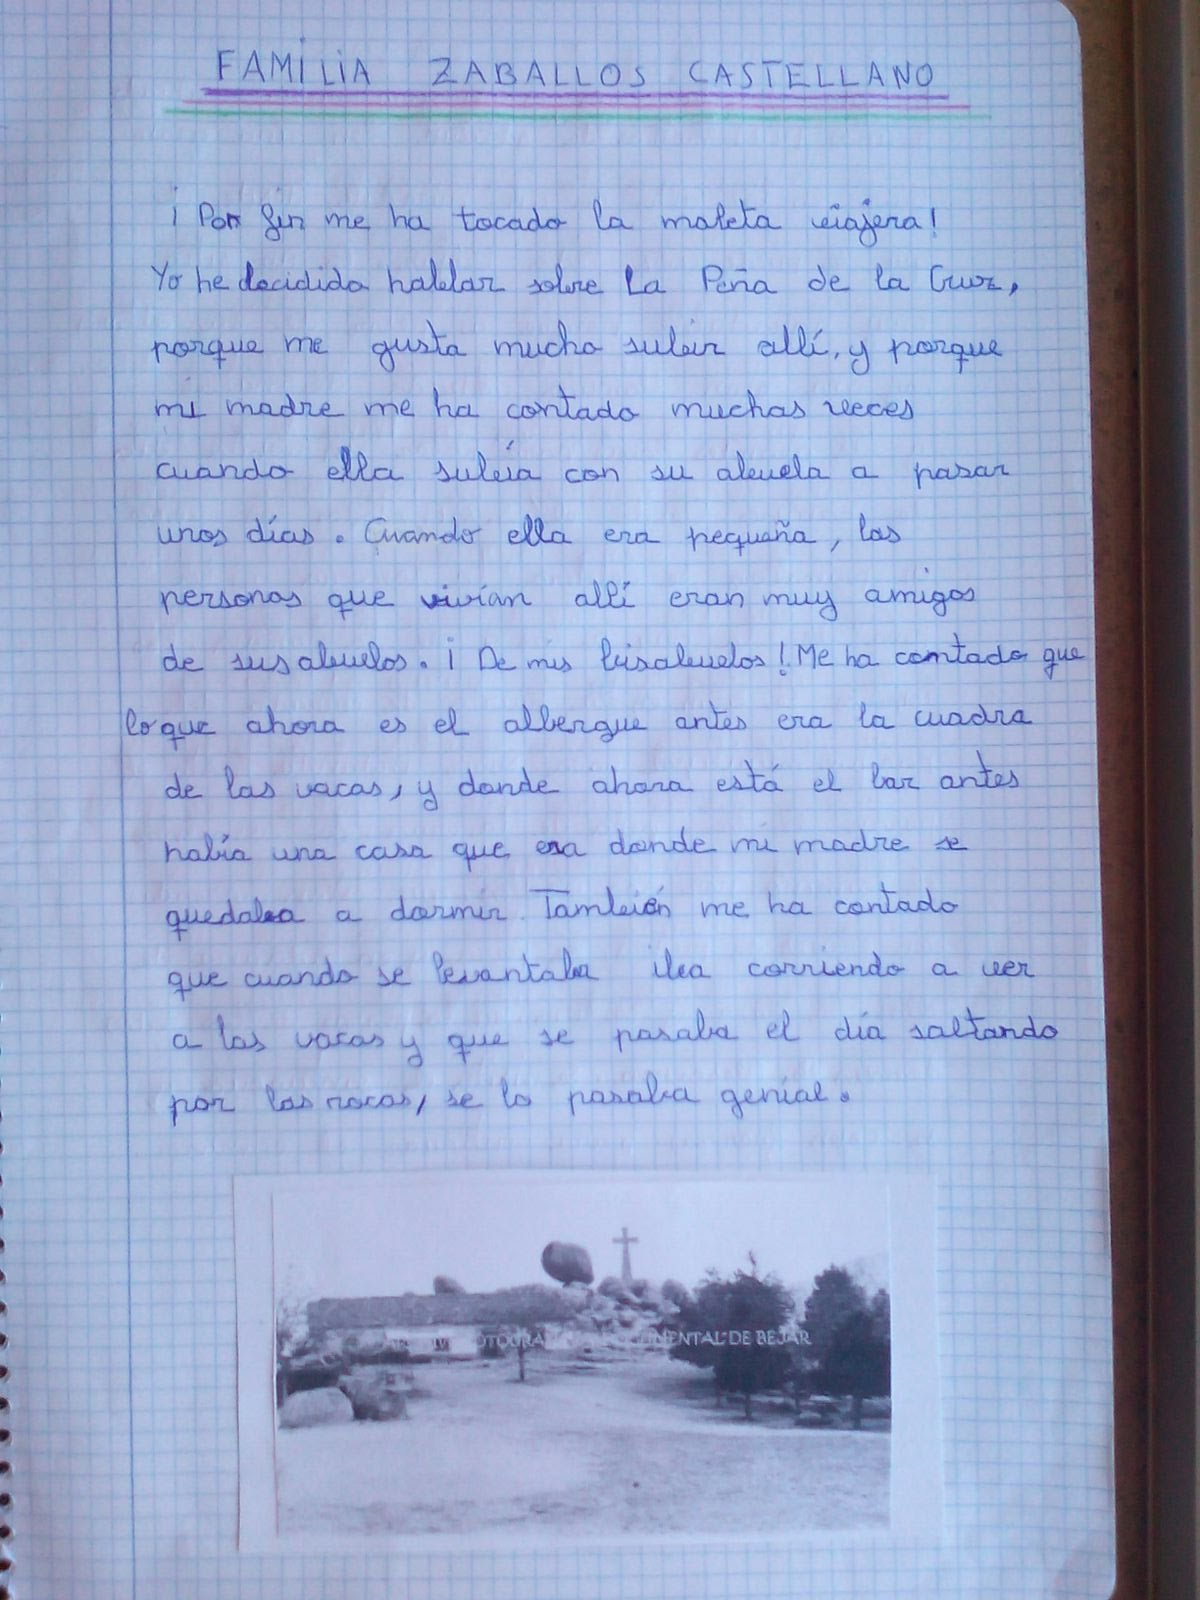 FAMILIA ZABALLOS CASTELLANO
¡Por fin me ha tocado la maleta viajera!
Yo he decidido hablar sobre La Peña de la Cruz,
porque me gusta mucho subir allí, y porque
mi madre me ha contado muchas veces
cuando ella subía con su abuela a pasar
unos días. Cuando ella era pequeña, las
personas que vivían allí eran muy amigos
de sus abuelos. ¡De mis bisabuelos! Me ha contado que
lo que ahora es el albergue antes era la cuadra
de las vacas, y donde ahora está el bar antes
había una casa que era donde mi madre se
quedaba a dormir. También me ha contado
que cuando se levantaba iba corriendo a ver
a las vacas y que se pasaba el día saltando
por las rocas, se lo pasaba genial.
DE BEJAR